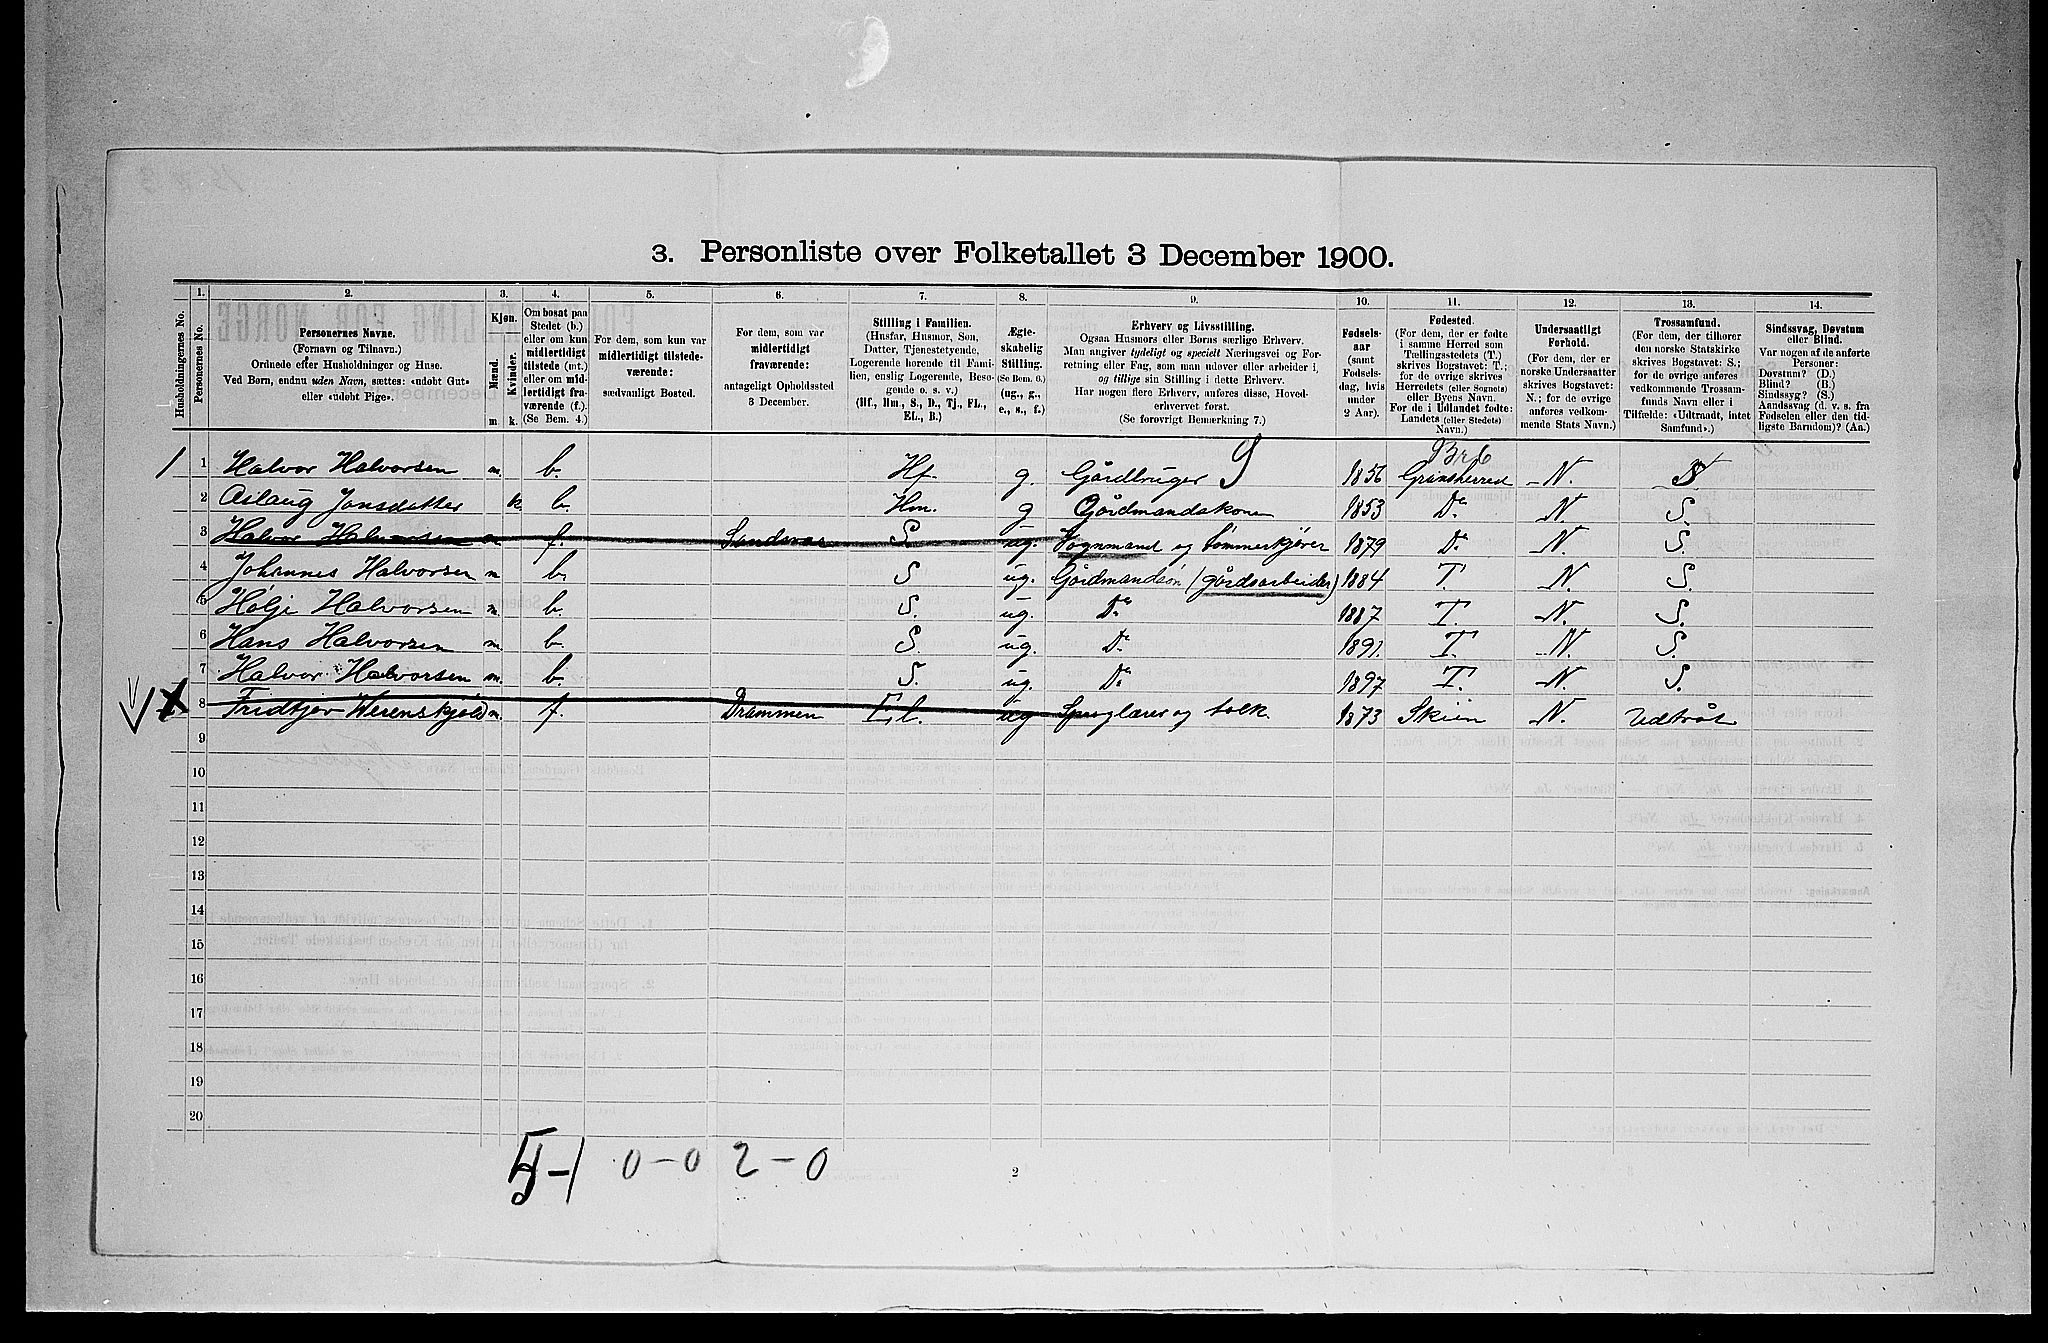 3. Personliste over Folketallet 3 December 1900.
1. 2. 3. 4. 5. 6. 7. 8. 9. 10. 11. 12. 13. 14.
Husholdningernes No.
Personernes No.
Personernes Navne.
(Fornavn og Tilnavn.)
Ordnede efter Husholdninger og Huse.
Ved Børn, endnu uden Navn, sættes: «udøbt Gut»
eller «udøbt Pige».
Kjøn.
Mænd.
Kvinder.
m. k.
Om bosat paa
Stedet (b.)
eller om kun
midlertidigt
tilstede (mt.)
eller om mid-
lertidigt fra-
værende (f.).
(Se Bem. 4.)
For dem, som kun var
midlertidigt tilstede-
værende:
sædvanligt Bosted.
For dem, som var
midlertidigt
fraværende:
antageligt Opholdssted
3 December.
Stilling i Familien.
(Husfar, Husmor, Søn,
Datter, Tjenestetyende,
Logerende hørende til Fami-
lien, enslig Logerende, Besø-
gende o. s. v.)
(Hf., Hm., S., D., Tj., FL.,
EL., B.)
Ægte-
skabelig
Stilling.
(Se Bem. 6.)
(ug., g.,
e., s., f.)
Erhverv og Livsstilling.
Ogsaa Husmors eller Børns særlige Erhverv.
Man angiver tydeligt og specielt Næringsvei og For-
retning eller Fag, som man udøver eller arbeider i,
og tillige sin Stilling i dette Erhverv.
Har nogen flere Erhverv, anføres disse, Hoved-
erhvervet først.
(Se forøvrigt Bemærkning 7.)
Fødsels-
aar
(samt
Fødsels-
dag, hvis
under
2 Aar).
Fødested.
(For dem, der er fødte
i samme Herred som
Tællingsstedets (T.)
skrives Bogstavet: T.;
for de øvrige skrives
Herredets (eller Sognets)
eller Byens Navn.
For de i Udlandet fødte:
Landets (eller Stedets)
Navn.)
Undersaatligt
Forhold.
(For dem, der er
norske Undersaatter
skrives Bogstavet:
N.; for de øvrige
anføres vedkom-
mende Stats Navn.)
Trossamfund.
(For dem, der tilhører
den norske Statskirke
skrives Bogstavet: S.;
for de øvrige anføres
vedkommende Trossam-
funds Navn eller i
Tilfælde: «Udtraadt, intet
Samfund».)
Sindssvag, Døvstum
eller Blind.
Var nogen af de anførte
Personer:
Døvstum? (D.)
Blind? (B.)
Sindssyg? (S.)
Aandssvag (d. v. s. fra
Fødselen eller den tid-
ligste Barndom)? (Aa.)
9 Br6
1 1 Halvor Halvorsen m. b. Hf. g. Gårdbruger 1856 Gransherred N. S
2 Aslaug Jonsdatter k. b. Hm. g Gårdmandskone 1853 Do N. S.
3 Halvor Halvorsen m. f. Sandsvær S. ug. Vognmand og tømmerkjører 1879 Do N. S.
4 Johannes Halvorsen m b. S ug. Gårdmandsøn (gårdsarbeider) 1884 T. N S.
5 Hølje Halvorsen m. b. S. ug. Do 1887 T. N. S.
6 Hans Halvorsen m. b. S. ug. Do 1891. T. N. S.
7 Halvor Halvorsen m. b. S. ug. Do 1897 T. N. S.
8 Fridtjov Werenskjold m. f. Drammen El. ug Sproglærer og tolk. 1873 Skien N. Udtråt
9
10
11
12
13
14
15
16
17
18
19
20
5-1 0-0 2-0
2